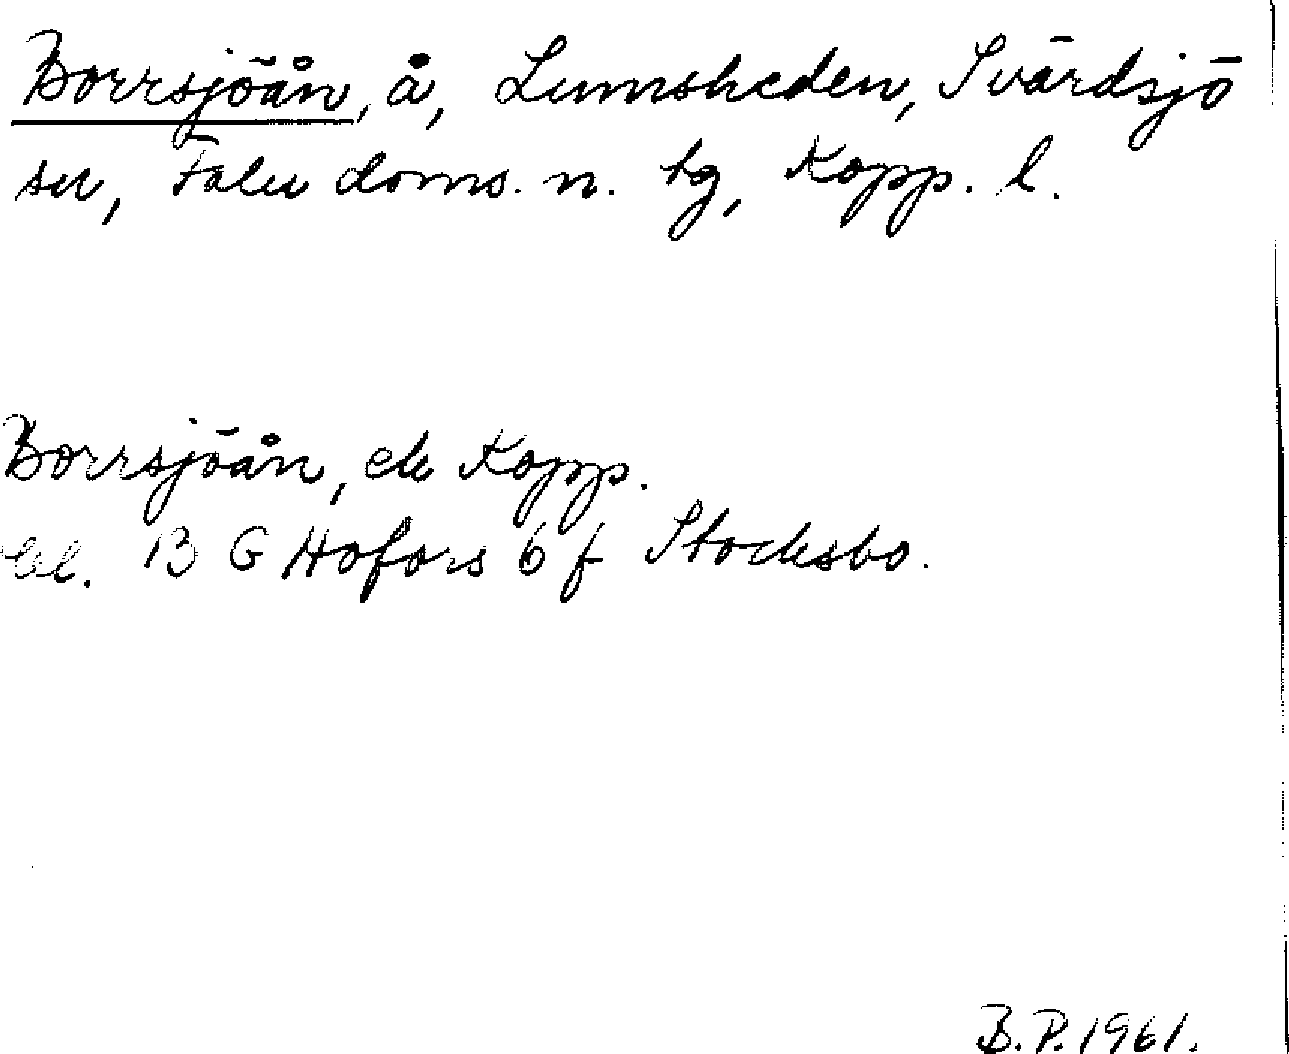 Borrsjöån, å, Lumsheden, Svärdsjö
sn, Falu doms. n. tg, Kopp. l.
Borrsjöån, ek Kopp.
bl. B G Hofors 6 f Stocksbo.
B.P. 1961.